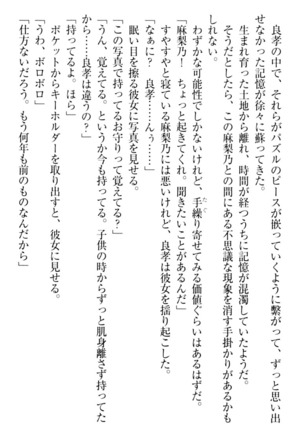 良孝の中で、それらがパズルのピースが嵌っていくように繋がって、ずっと思い出
せなかった記憶が徐々に蘇ってきた。
生まれ育った土地から離れ、時間が経つうちに記憶が混濁していたようだ。
そうだとしたら、この麻梨乃との間にある不思議な現象を消す手掛かりがあるかも
しれない。
わずかな可能性でしかないけれど、手繰り寄せてみる価値ぐらいはあるはずだ。
「麻梨乃！　ちょっと起きてくれ。聞きたいことがあるんだ」
すやすやと寝ている麻梨乃には悪いけれど、良孝は彼女を揺り起こした。
「なぁに？　良孝……んぅ……」
眠い目を擦る彼女に写真を見せる。
「この写真で持ってるお守りって覚えてる？」
「うん、覚えてる。というか今も持ってる。子供の時からずっと肌身離さず持ってた
から……良孝は違うの？」
「持ってるよ。ほら」
ポケットからキーホルダーを取り出すと、彼女に見せる。
「うわ、ボロボロ」
「仕方ないだろう。もう何年も前のものなんだから」